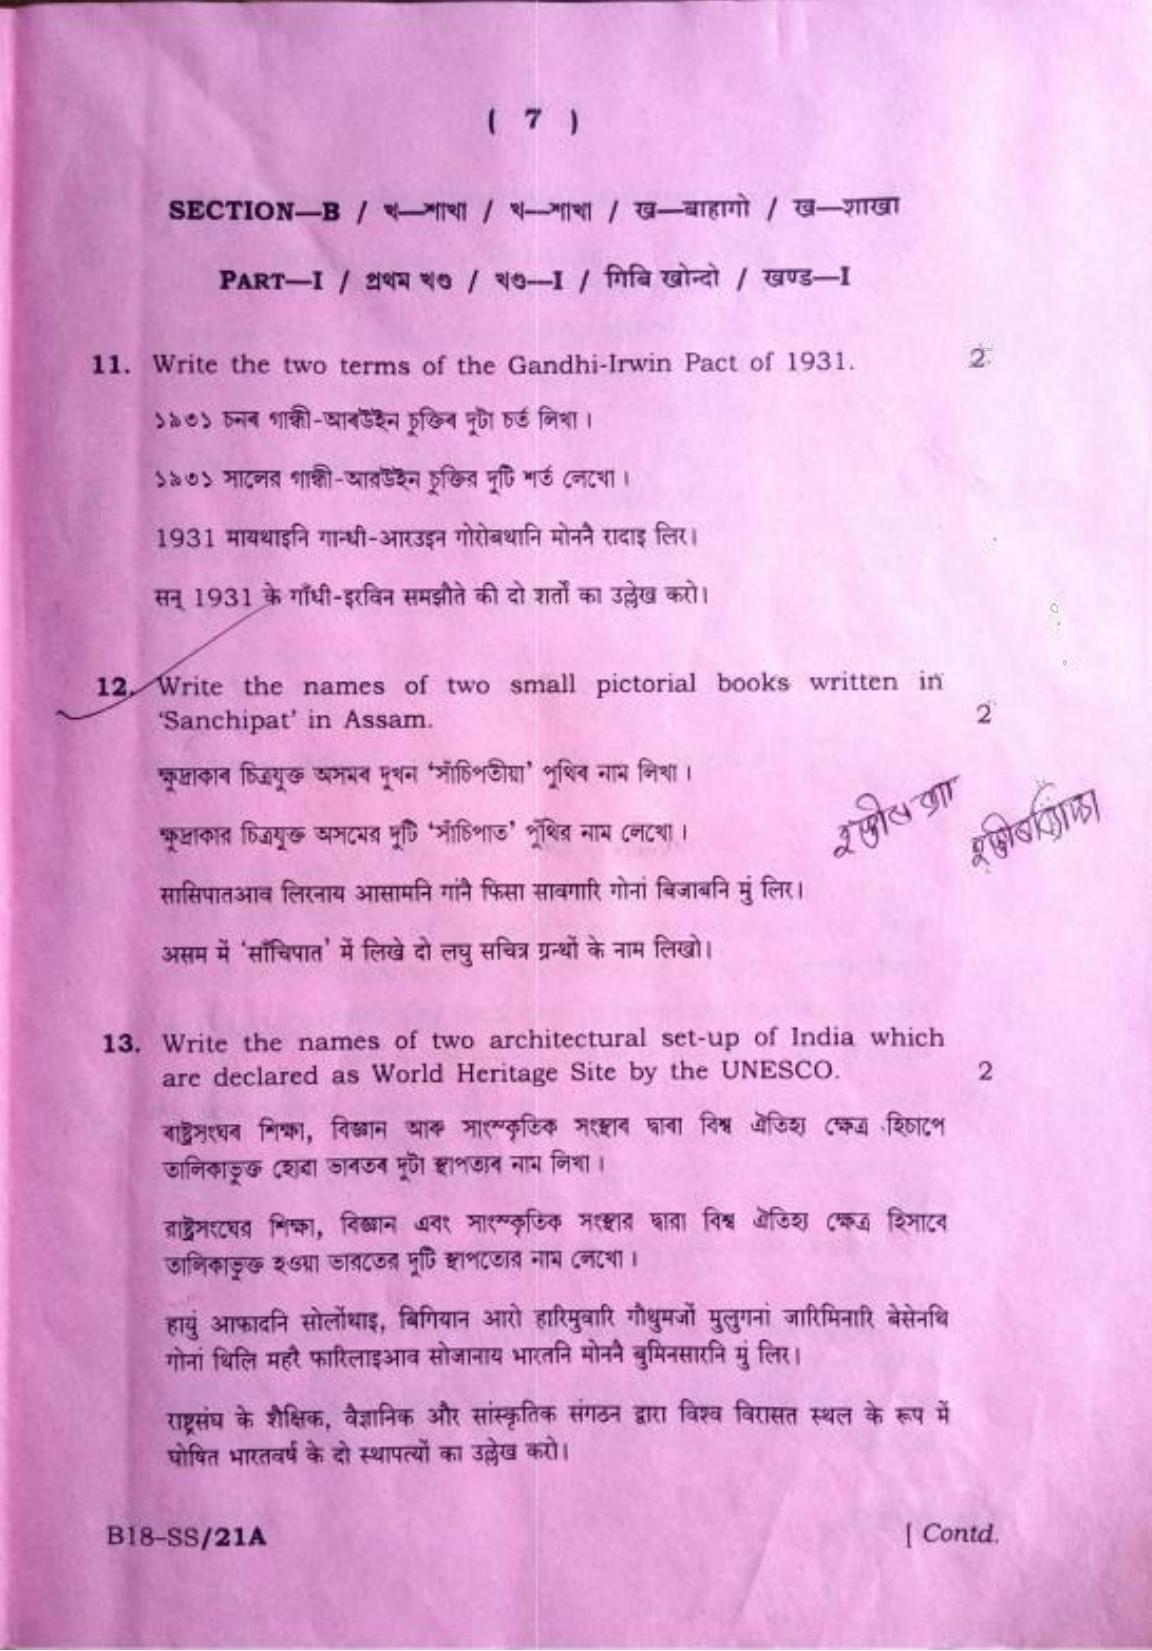 ( 7 )
SECTION—B / খ—শাখা / খ—শাখা / ख—बाहागो / ख—शाखा
PART—I / প্ৰথম খণ্ড / খণ্ড—I / गिबि खोन्दो / खण्ड—I
11. Write the two terms of the Gandhi-Irwin Pact of 1931. 2
১৯৩১ চনৰ গান্ধী-আৰউইন চুক্তিৰ দুটা চৰ্ত লিখা ।
১৯৩১ সালের গান্ধী-আরউইন চুক্তির দুটি শর্ত লেখো ।
1931 मायथाइनि गान्धी-आरउइन गोरोबथानि मोननै रादाइ लिर।
सन् 1931 के गाँधी-इरविन समझौते की दो शर्तों का उल्लेख करो।
12. Write the names of two small pictorial books written in
‘Sanchipat’ in Assam. 2
ক্ষুদ্ৰাকাৰ চিত্ৰযুক্ত অসমৰ দুখন ‘সাঁচিপতীয়া’ পুথিৰ নাম লিখা ।
ক্ষুদ্রাকার চিত্রযুক্ত অসমের দুটি ‘সাঁচিপাত’ পুঁথির নাম লেখো ।
सासिपातआव लिरनाय आसामनि गांनै फिसा सावगारि गोनां बिजाबनि मुं लिर।
असम में ‘साँचिपात’ में लिखे दो लघु सचित्र ग्रन्थों के नाम लिखो।
13. Write the names of two architectural set-up of India which
are declared as World Heritage Site by the UNESCO. 2
ৰাষ্ট্ৰসংঘৰ শিক্ষা, বিজ্ঞান আৰু সাংস্কৃতিক সংস্থাৰ দ্বাৰা বিশ্ব ঐতিহ্য ক্ষেত্ৰ হিচাপে
তালিকাভুক্ত হোৱা ভাৰতৰ দুটা স্থাপত্যৰ নাম লিখা ।
রাষ্ট্রসংঘের শিক্ষা, বিজ্ঞান এবং সাংস্কৃতিক সংস্থার দ্বারা বিশ্ব ঐতিহ্য ক্ষেত্র হিসাবে
তালিকাভুক্ত হওয়া ভারতের দুটি স্থাপত্যের নাম লেখো ।
हायुं आफादनि सोलोंथाइ, बिगियान आरो हारिमुवारि गौथुमजों मुलुगनां जारिमिनारि बेसेनथि
गोनां थिलि महरै फारिलाइआव सोजानाय भारतनि मोननै बुमिनसारनि मुं लिर।
राष्ट्रसंघ के शैक्षिक, वैज्ञानिक और सांस्कृतिक संगठन द्वारा विश्व विरासत स्थल के रूप में
घोषित भारतवर्ष के दो स्थापत्यों का उल्लेख करो।
B18–SS/21A [ Contd.